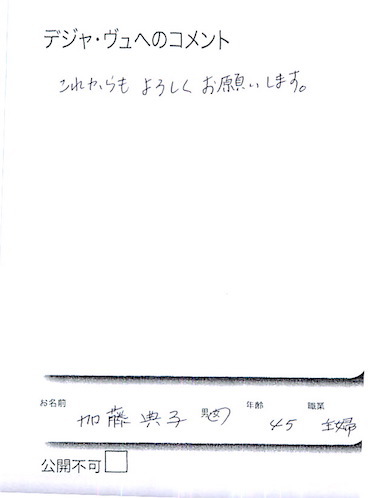 デジャ・ヴュへのコメント
これからも よろしく お願いします。
お名前 加藤 典子 男・女 年齢 45 職業 主婦
公開不可